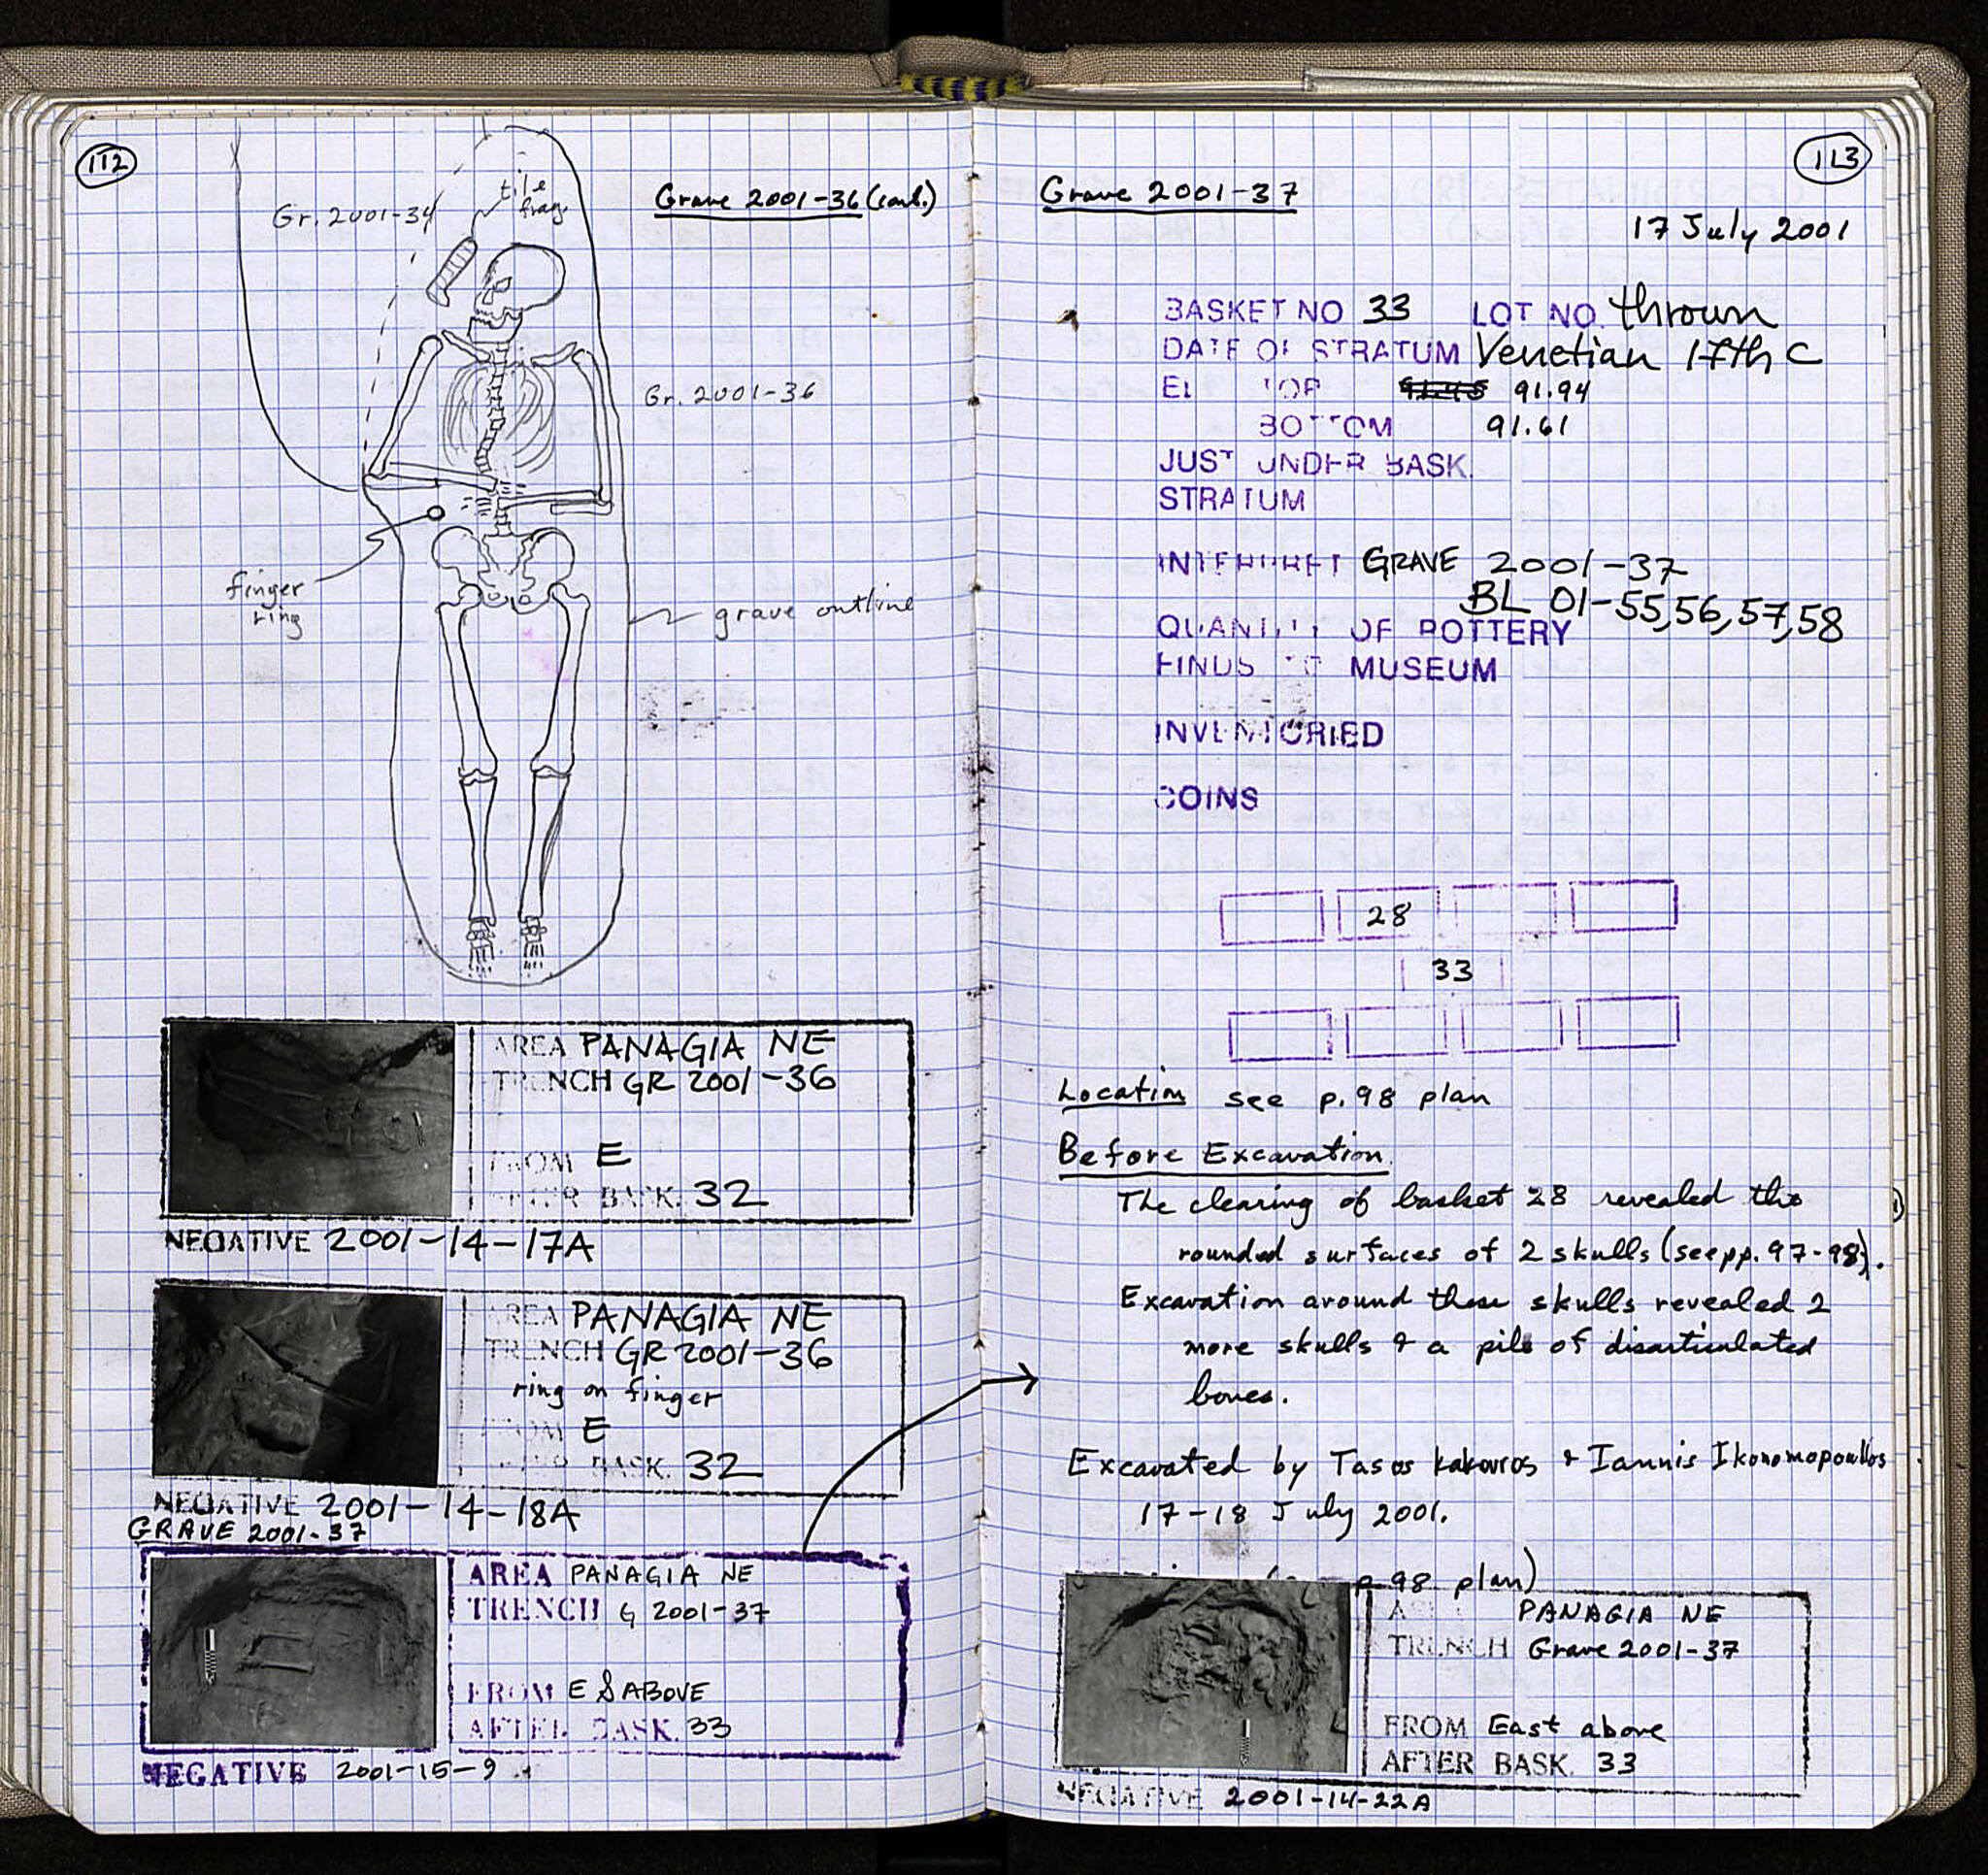 112
Gr. 2001-34
tile
frag.
Grave 2001-36 (cont.)
Gr. 2001-36
finger
ring
grave outline
AREA PANAGIA NE
TRENCH GR 2001-36
FROM E
AFTER BASK. 32
NEGATIVE 2001-14-17A
AREA PANAGIA NE
TRENCH GR 2001-36
ring on finger
FROM E
AFTER BASK. 32
NEGATIVE 2001-14-18A
GRAVE 2001-37
AREA PANAGIA NE
TRENCH G 2001-37
FROM E & ABOVE
AFTER BASK. 33
NEGATIVE 2001-15-9
113
Grave 2001-37
17 July 2001
BASKET NO 33 LOT NO. thrown
DATE OF STRATUM Venetian 17th C
EL TOP 91.94
BOTTOM 91.61
JUST UNDER BASK.
STRATUM
INTERPRET GRAVE 2001-37
BL 01-55,56,57,58
QUANTITY OF POTTERY
FINDS TO MUSEUM
INVENTORIED
COINS
28
33
Location see p. 98 plan
Before Excavation
The clearing of basket 28 revealed the
rounded surfaces of 2 skulls (see pp. 97-98).
Excavation around these skulls revealed 2
more skulls & a pile of disarticulated
bones.
Excavated by Tasos Kakouros & Iannis Ikonomopoulos
17-18 July 2001.
p 98 plan)
AREA PANAGIA NE
TRENCH Grave 2001-37
FROM East above
AFTER BASK. 33
NEGATIVE 2001-14-22A